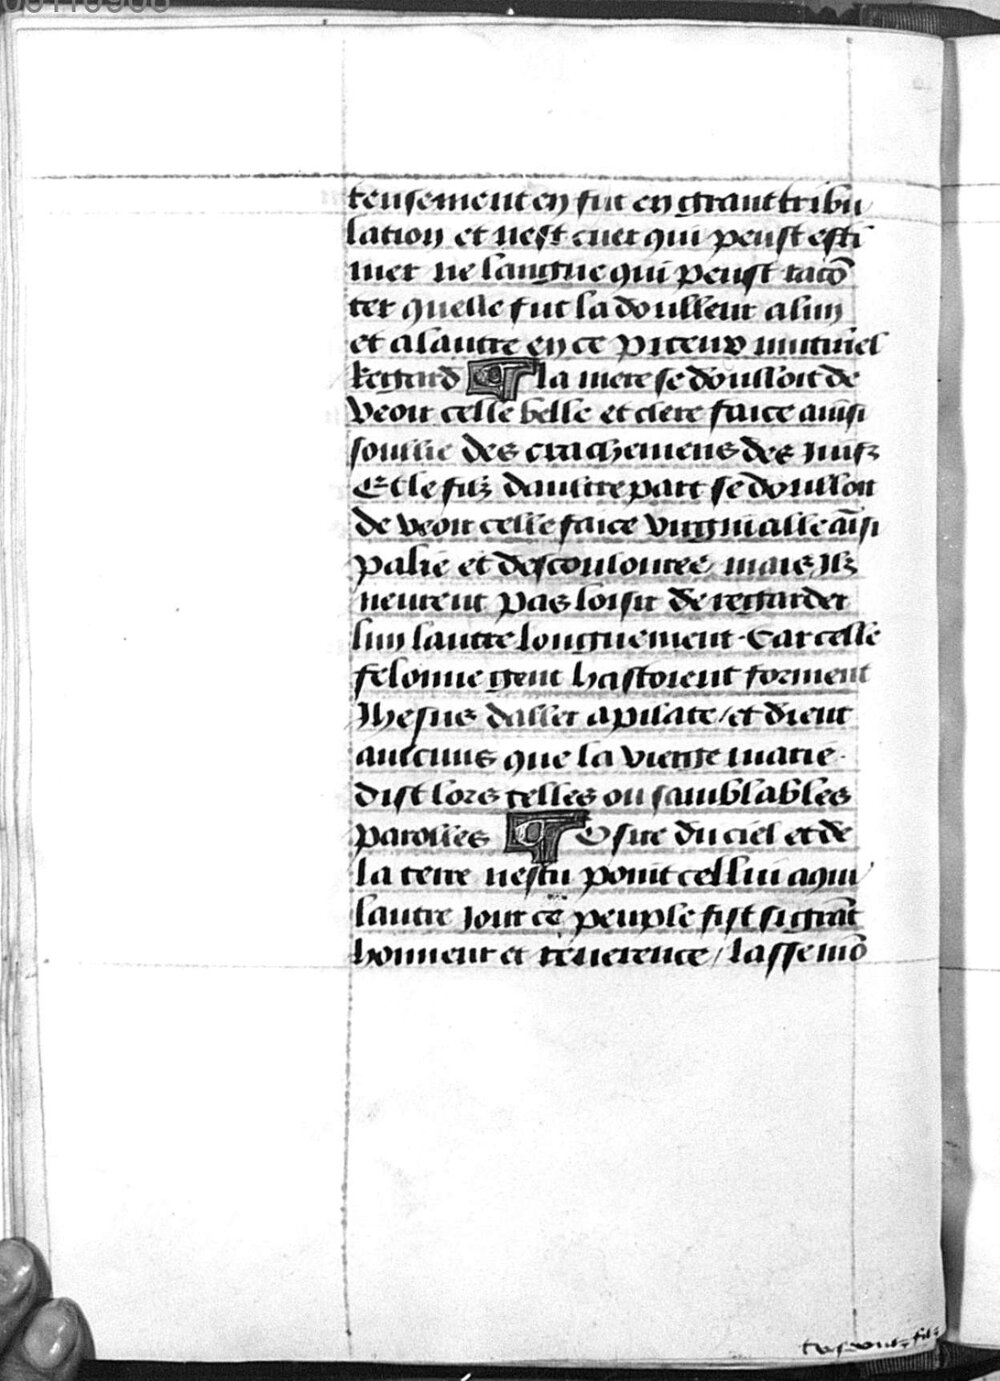 teusement en fut en grant tribu
lation et nest cuer qui peust esti
mer ne langue qui peust racō
ter quelle fut la doulleur a lun
et a lautre en ce piteux mutuel
Regard ¶ la mere se doulloit de
veoir celle belle et clere face ainsi
soullie des crachemens des Juifz
Et le filz daultre part se doulloit
de veoir celle face virginalle aīsi
palie et descoulouree mais Ilz
neurent pas loisir de regarder
lun lautre longuement. Car celle
felonne gent hastoient forment
Jhesus daller a pilate / et dient
aucuns que la vierge marie.
dist lors telles ou samblables
parolles ¶ O sire du ciel et de
la terre nestu point cellui a qui
lautre Jour ce peuple fist si grāt
honneur et reuerence / lasse mō